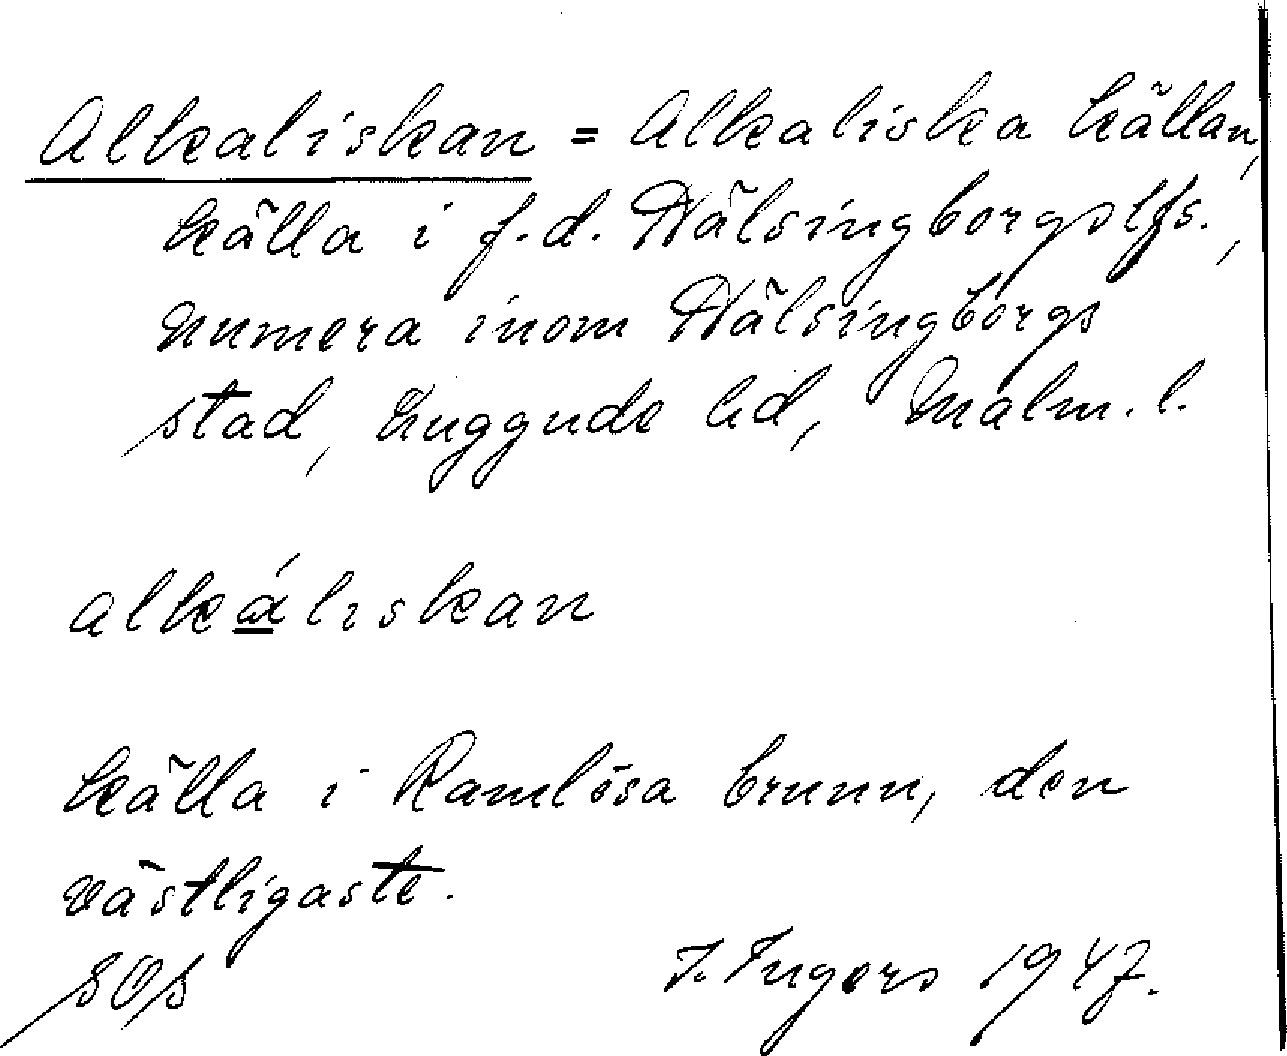 Alkaliskan = Alkaliska källan,
källa i f.d. Hälsingborgs lfs.,
numera inom Hälsingborgs
stad, Luggude hd, Malm. l.
alká̱liskan
källa i Ramlösa brunn, den
västligaste.
SOS I. Ingers 1947.